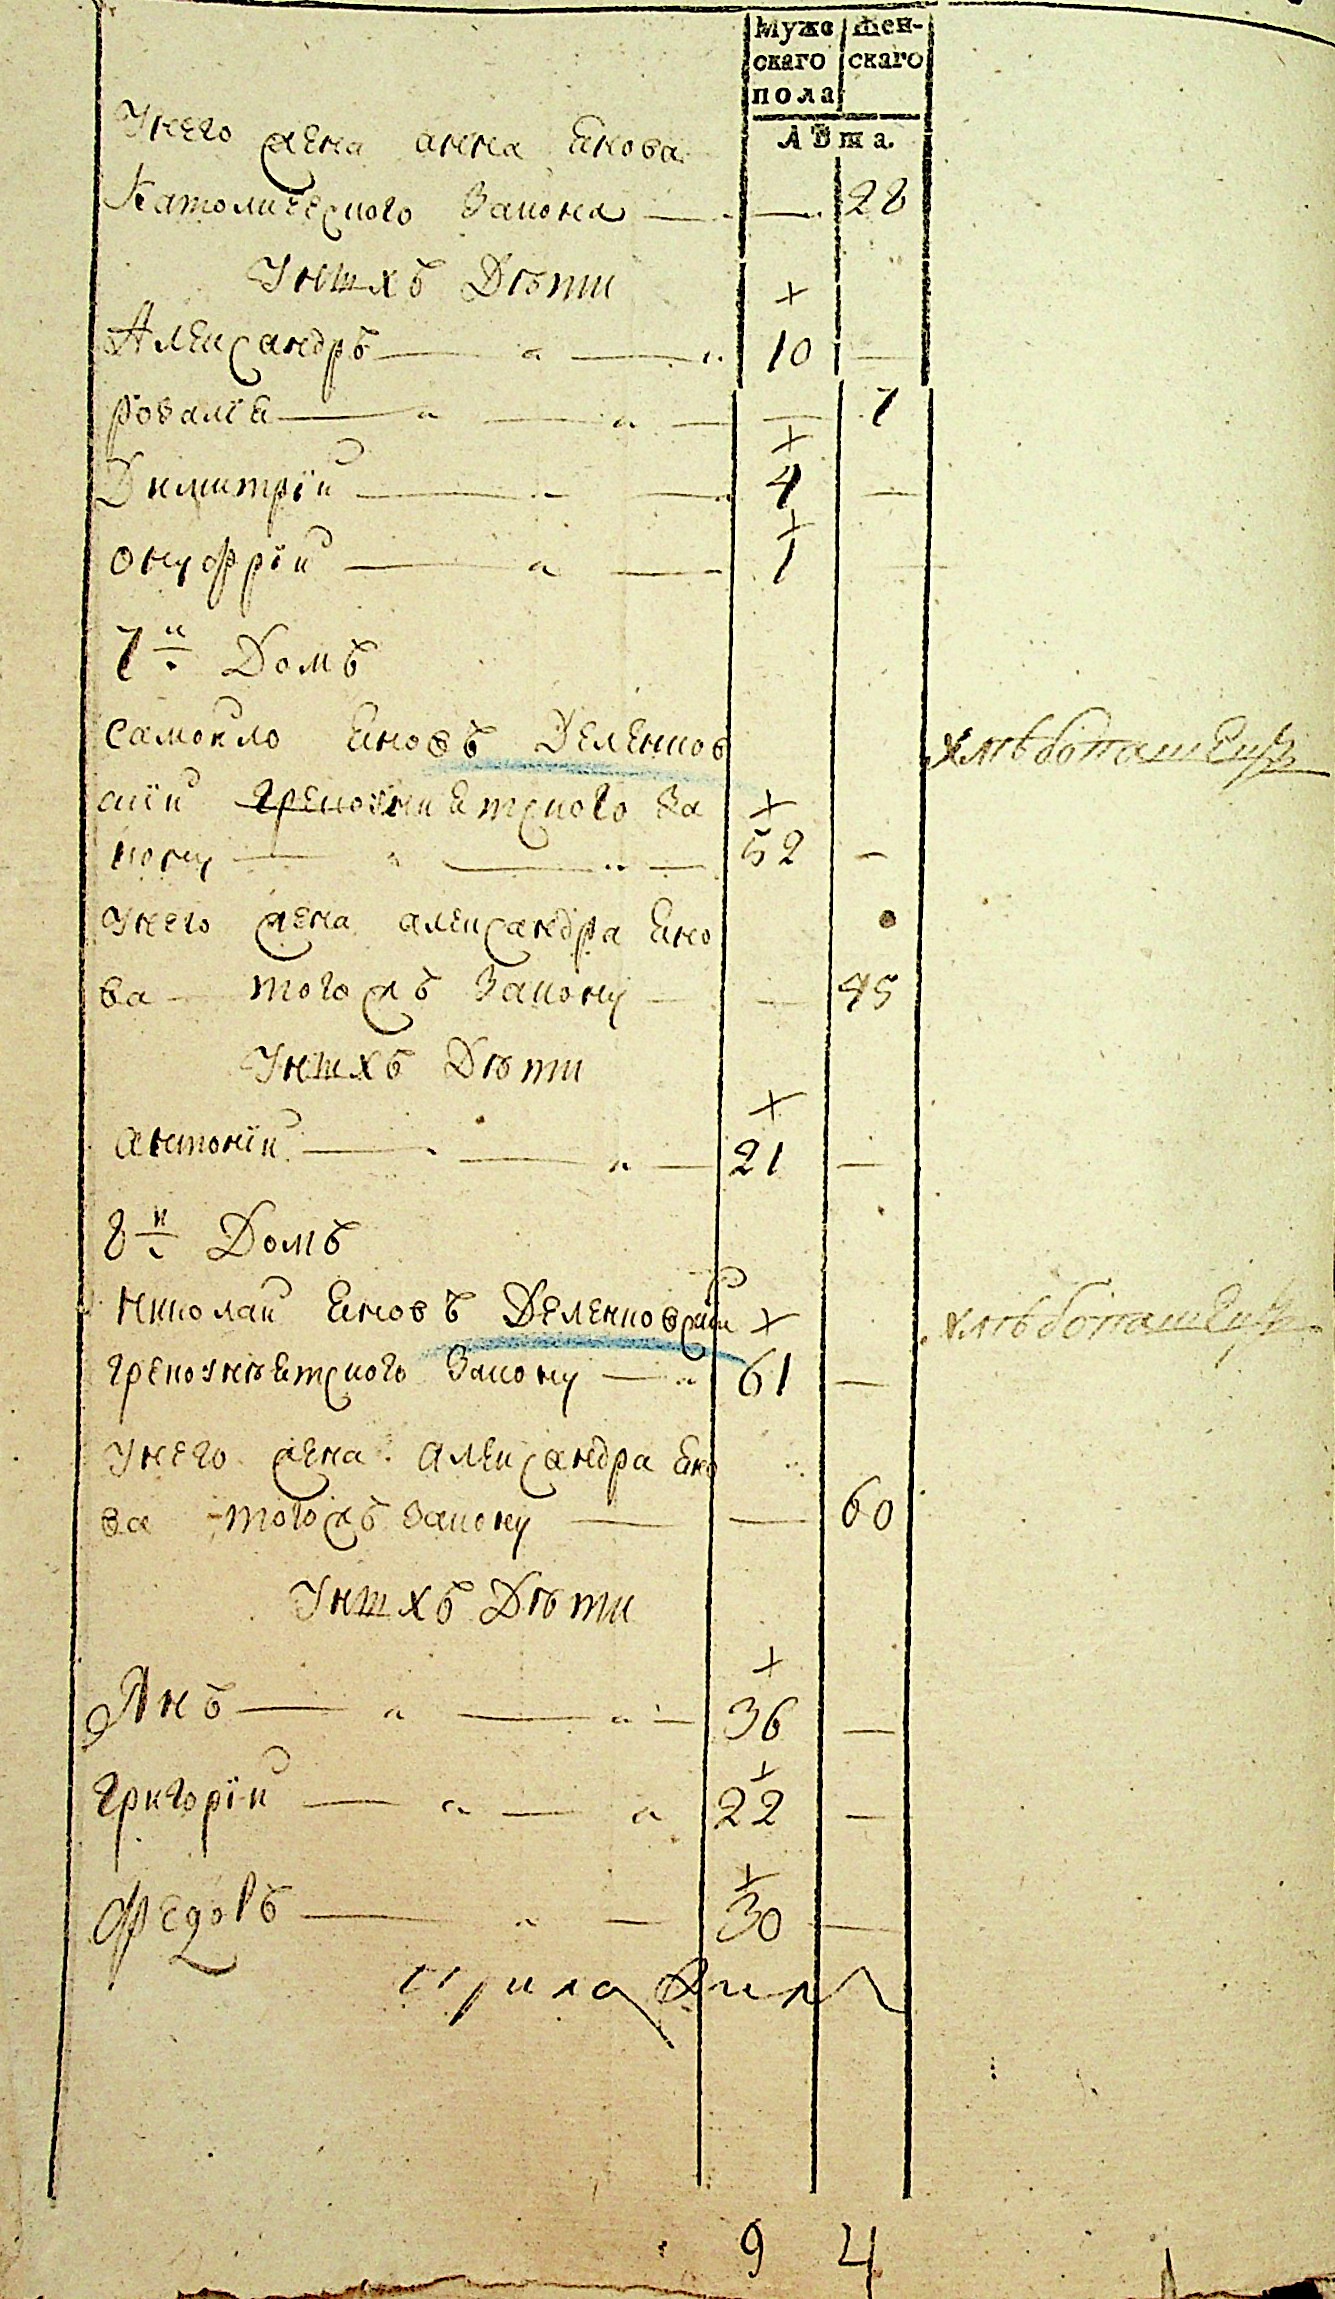 Муже Жен-
скаго скаго
пола
Лѣта.
Унего жена анна Янова
Католического Закона — — 28
Унихъ Дѣти
Александръ — „ — „ 10 —
розалія — „ — „ — — 7
Димитрій — „ — 4 —
онуфрій — „ — 1
7й Домъ
самойло Яновъ Зеленков
скій грекоуниятского За
кону — „ — „ — 52 —
Унего жена александра Яно
ва — тогожъ Закону — — 45
Унихъ Дѣти
антоній — „ — „ — 21 —
8й Домъ
Николай Яновъ Зеленковский
грекоунѣятского Закону — „ 61 —
Унего жена Александра Яно
ва — тогожъ Закону — — 60
Унихъ Дѣти
Янъ — „ — „ — 36 —
григорій — „ — „ 22 —
Федоръ — „ — 30 —
9 4